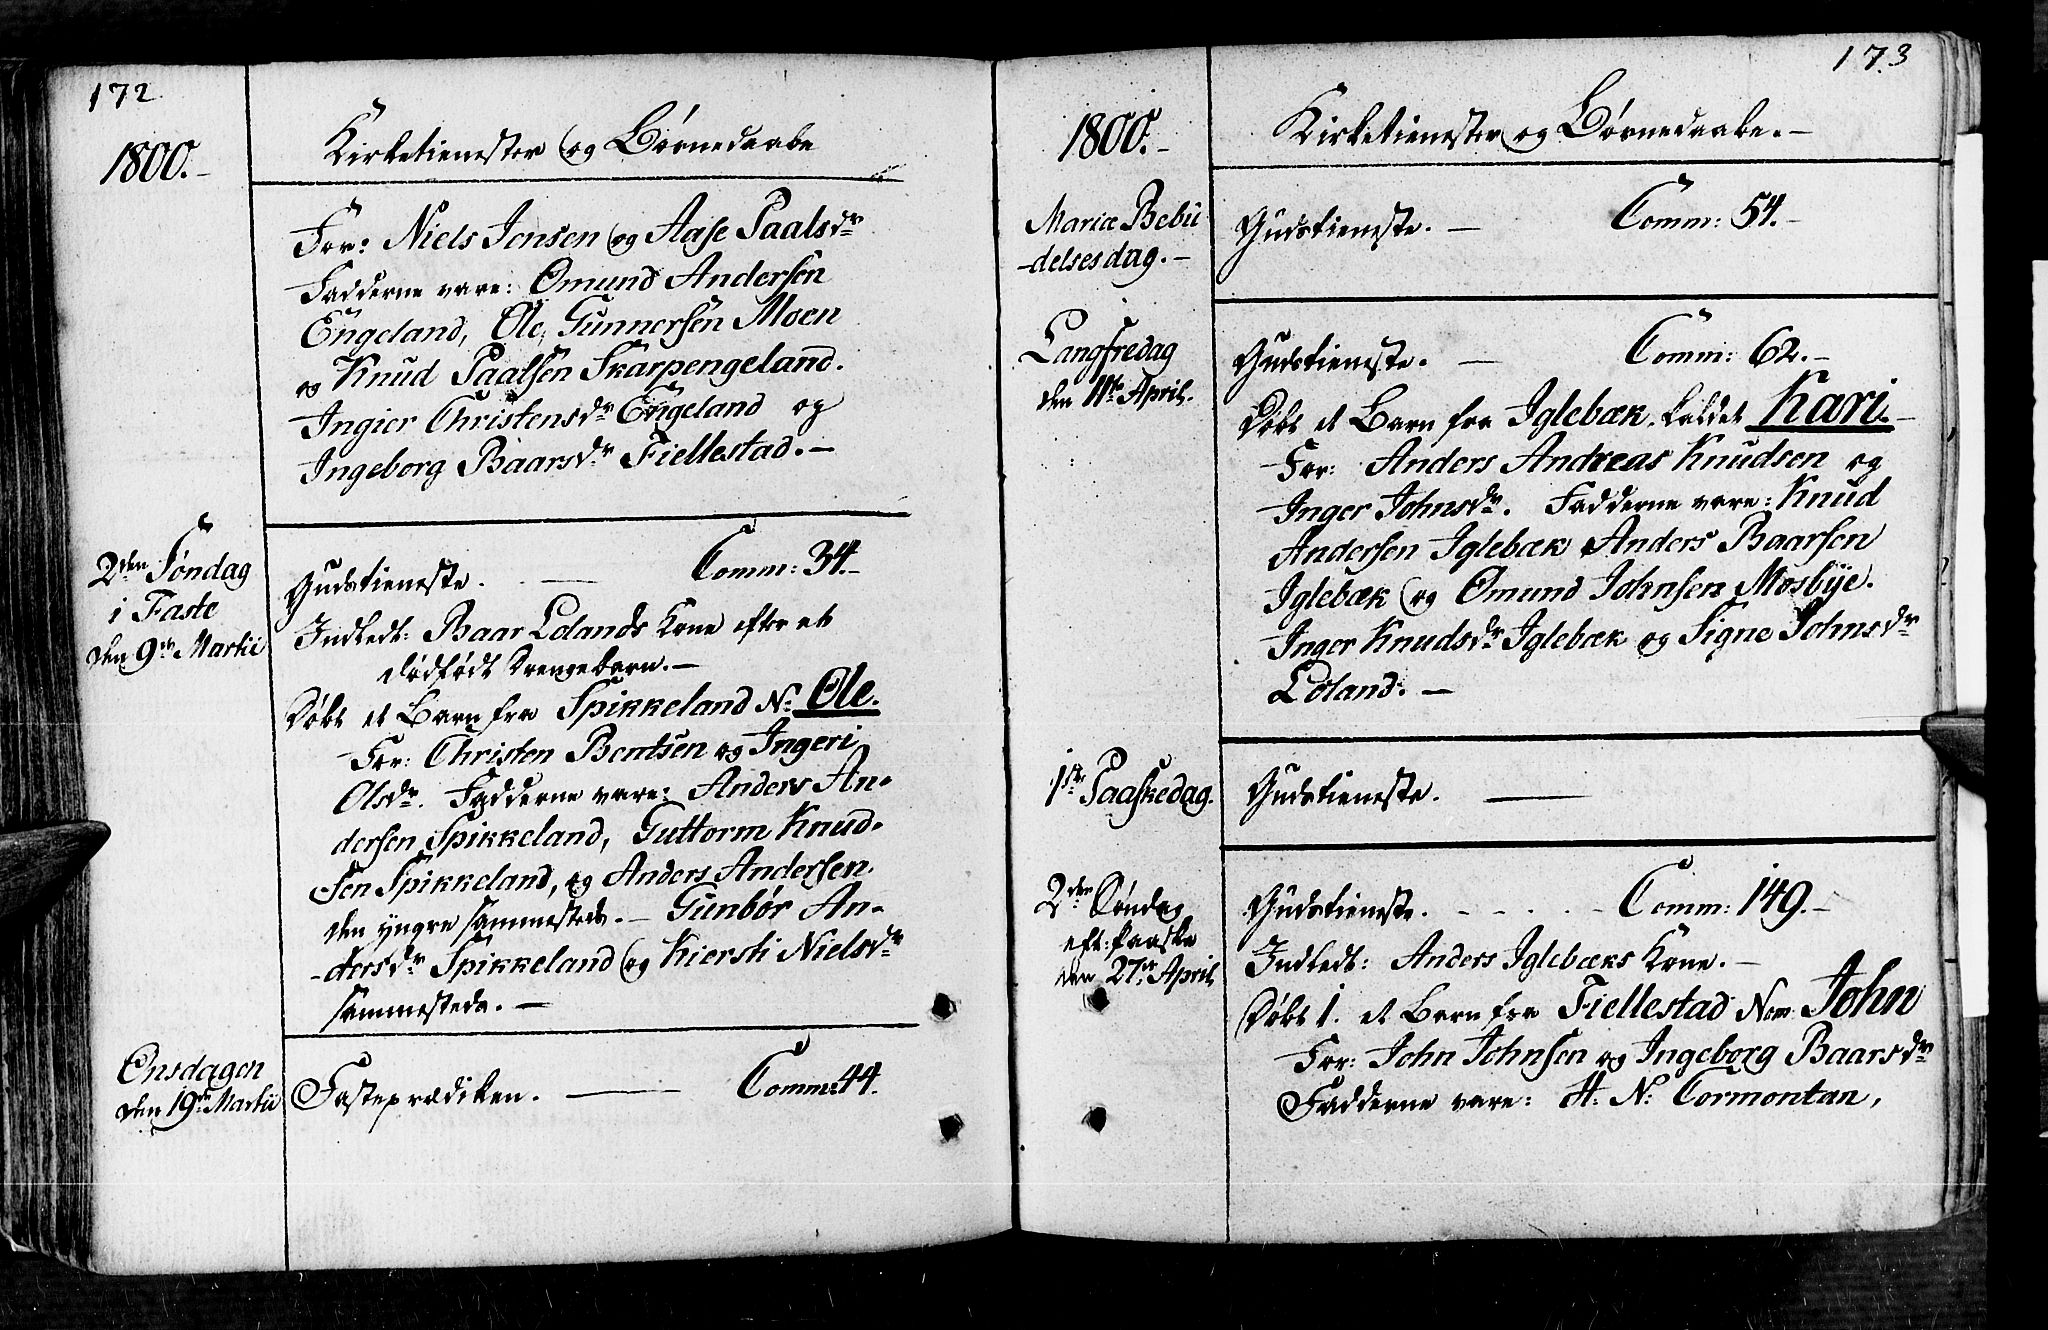 172
1800.-
Kirketienester og Børnedaabe
For: Niels Jensen og Aase Paalsdr
Fadderne vare: Omund Andersen
Engeland, Ole Gunnersen Moen
og Knud Paalsen Skarpengeland.
Ingier Christensdr Engeland og
Ingeborg Baarsdr Fiellestad.-
2den Søndag
i Faste
den 9de Martii
Gudstieneste. - Comm: 34.-
Indledt: Baar Lolands Kone efter et
dødfødt Drengebarn.-
Døbt et Barn fra Spikkeland N: Ole.
For: Christen Bentsen og Ingeri
Olsdr. Fadderne vare: Anders An-
dersen Spikkeland, Guttorm Knud-
sen Spikkeland, og Anders Andersen
den yngre sammesteds.- Gunbør An-
-dersdr Spikkeland og Kiersti Nielsdr
sammesteds.-
Onsdagen
den 19de Martii
Fasteprædiken. - Comm: 44.
173
1800.-
Kirketienester og Børnedaabe.-
Mariæ Bebu
-delsesdag.-
Gudstieneste.- Comm: 54.-
Langfredag
den 11te April.
Gudstieneste. - Comm: 62.-
Døbt et Barn fra Iglebæk kaldet Kari.-
For: Anders Andreas Knudsen og
Inger Johnsdr. Fadderne vare: Knud
Andersen Iglebæk, Anders Baarsen
Iglebæk og Omund Johnsen Mosbye.
Inger Knudsdr Iglebæk og Signe Johnsdr
Loland.-
1ste Paaskedag.
Gudstieneste. -
2den Søndag
eft: Paaske
den 27de April
Gudstieneste. - Comm: 149.-
Indledt: Anders Iglebæks Kone.-
Døbt 1. et Barn fra Fiellestad Nom: John
For: John Johnsen og Ingeborg Baarsdr
Fadderne vare: H: N: Cormontan,